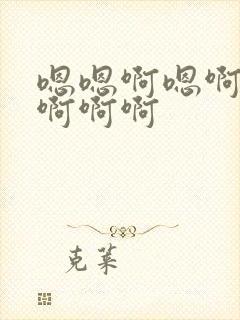 嗯嗯啊嗯啊
啊啊啊
克莱